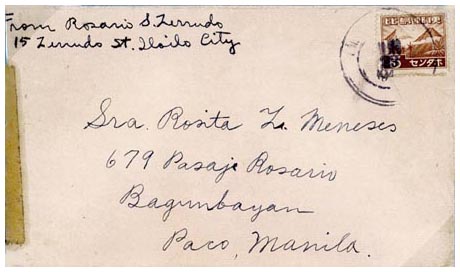 From Rosario S. Zerrudo
15 Zerrudo St. Iloilo City
5 センタボ
Sra. Rosita Z. Meneses
679 Pasaje Rosario
Bagunbayan
Paco, Manila.